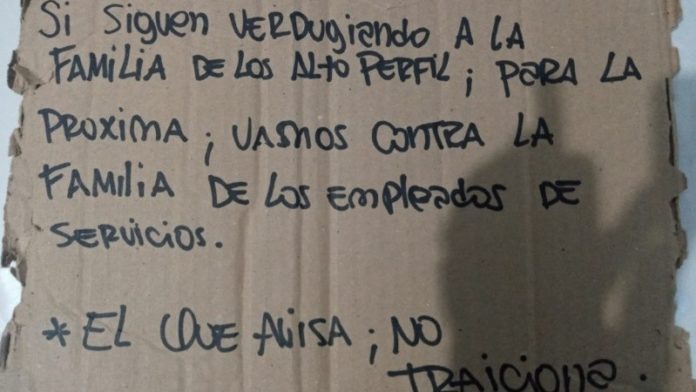 Si Siguen VERDugiando A LA
FAMILIA DE LOS Alto PERFIL; PARA LA
PROXIMA; VAMOS CONTRA LA
FAMILIA DE LOS Empleados DE
SERVICIOS.
* EL QUE AVISA; NO
TRAICIONA.